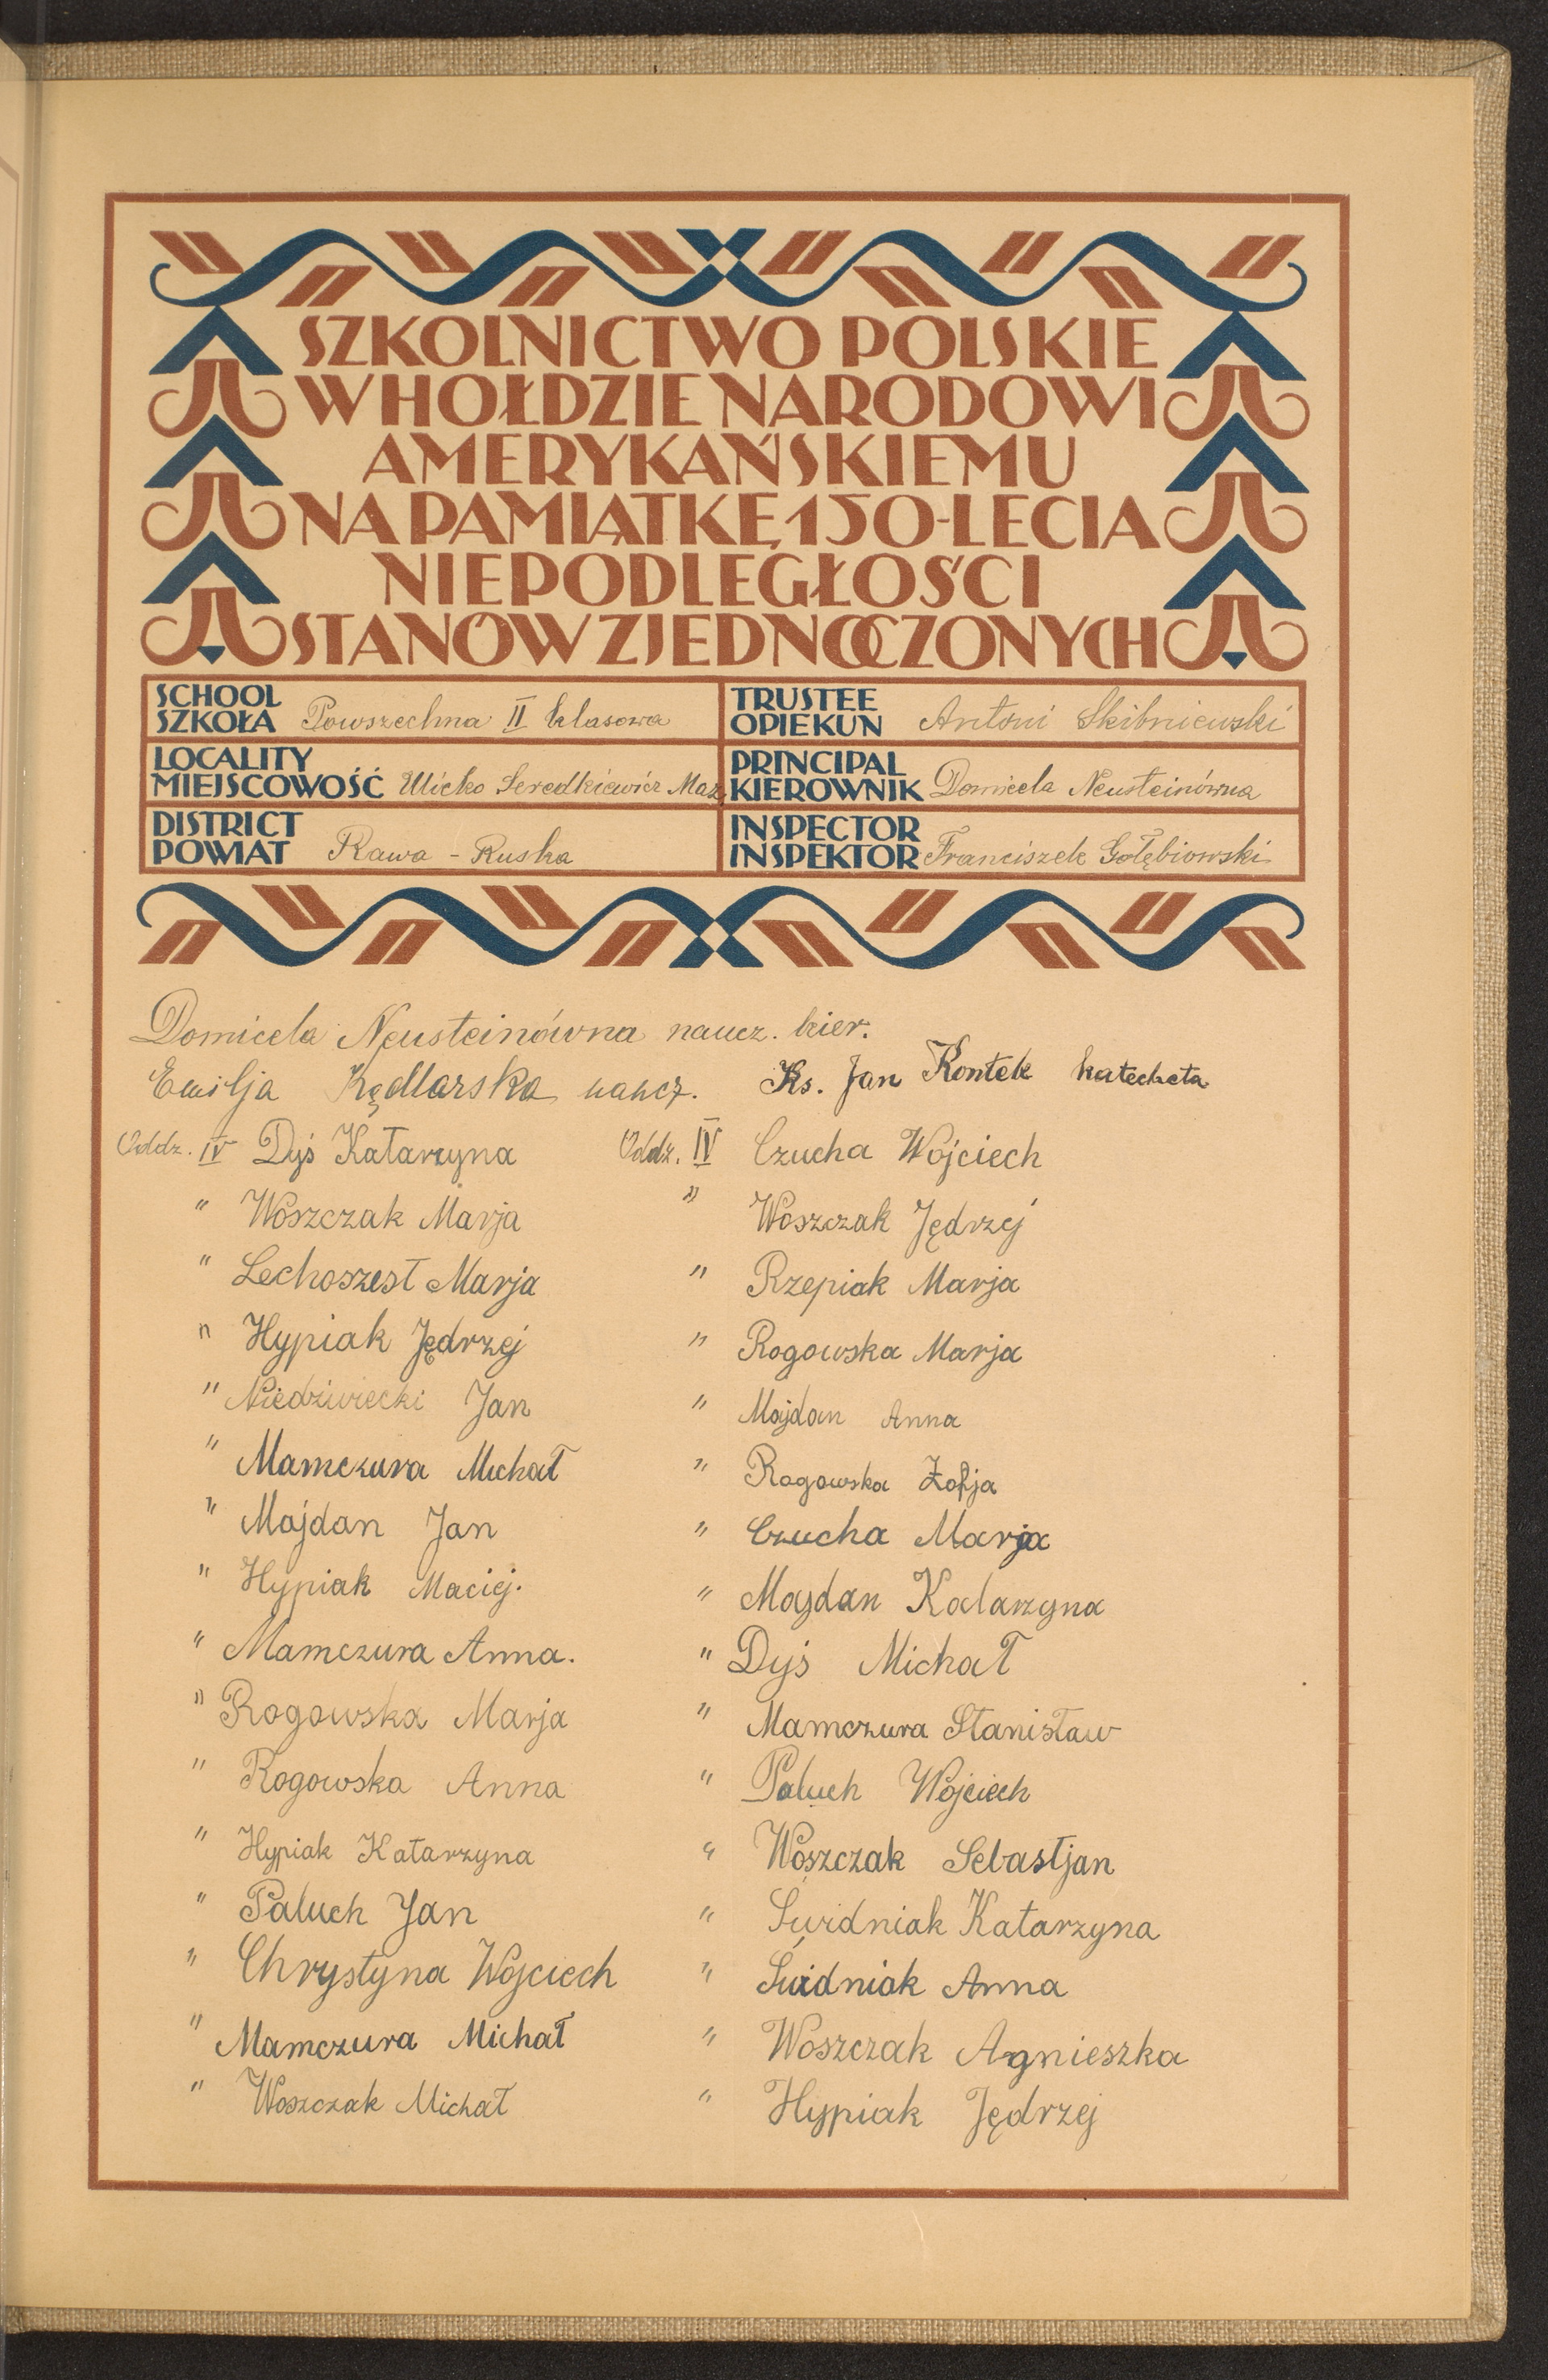 SZKOLNICTWO POLSKIE
W HOŁDZIE NARODOWI
AMERYKAŃSKIEMU
NA PAMIĄTKĘ 150-LECIA
NIEPODLEGŁOŚCI
STANÓW ZJEDNOCZONYCH
SCHOOL
SZKOŁA Powszechna II klasowa
TRUSTEE
OPIEKUN Antoni Skibniewski
LOCALITY
MIEJSCOWOŚĆ Ulicko Seredkiewicz Maz.
PRINCIPAL
KIEROWNIK Domicela Neusteinówna
DISTRICT
POWIAT Rawa - Ruska
INSPECTOR
INSPEKTOR Franciszek Gołębiowski
Domicela Neusteinówna naucz. kier.
Emilja Kędlarska naucz. Ks. Jan Kontek katecheta
Oddz. IV Dyś Katarzyna
" Woszczak Marja
" Lechoszest Marja
" Hypiak Jędrzej
" Niedźwiecki Jan
" Mamczura Michał
" Majdan Jan
" Hypiak Maciej.
" Mamczura Anna.
" Rogowska Marja
" Rogowska Anna
" Hypiak Katarzyna
" Paluch Jan
" Chrystyna Wojciech
" Mamczura Michał
" Woszczak Michał
Oddz. IV Czucha Wojciech
" Woszczak Jędrzej
" Rzepiak Marja
" Rogowska Marja
" Majdan Anna
" Rogowska Zofja
" Czucha Marja
" Majdan Katarzyna
" Dyś Michał
" Mamczura Stanisław
" Paluch Wojciech
" Woszczak Sebastjan
" Świdniak Katarzyna
" Świdniak Anna
" Woszczak Agnieszka
" Hypiak Jędrzej